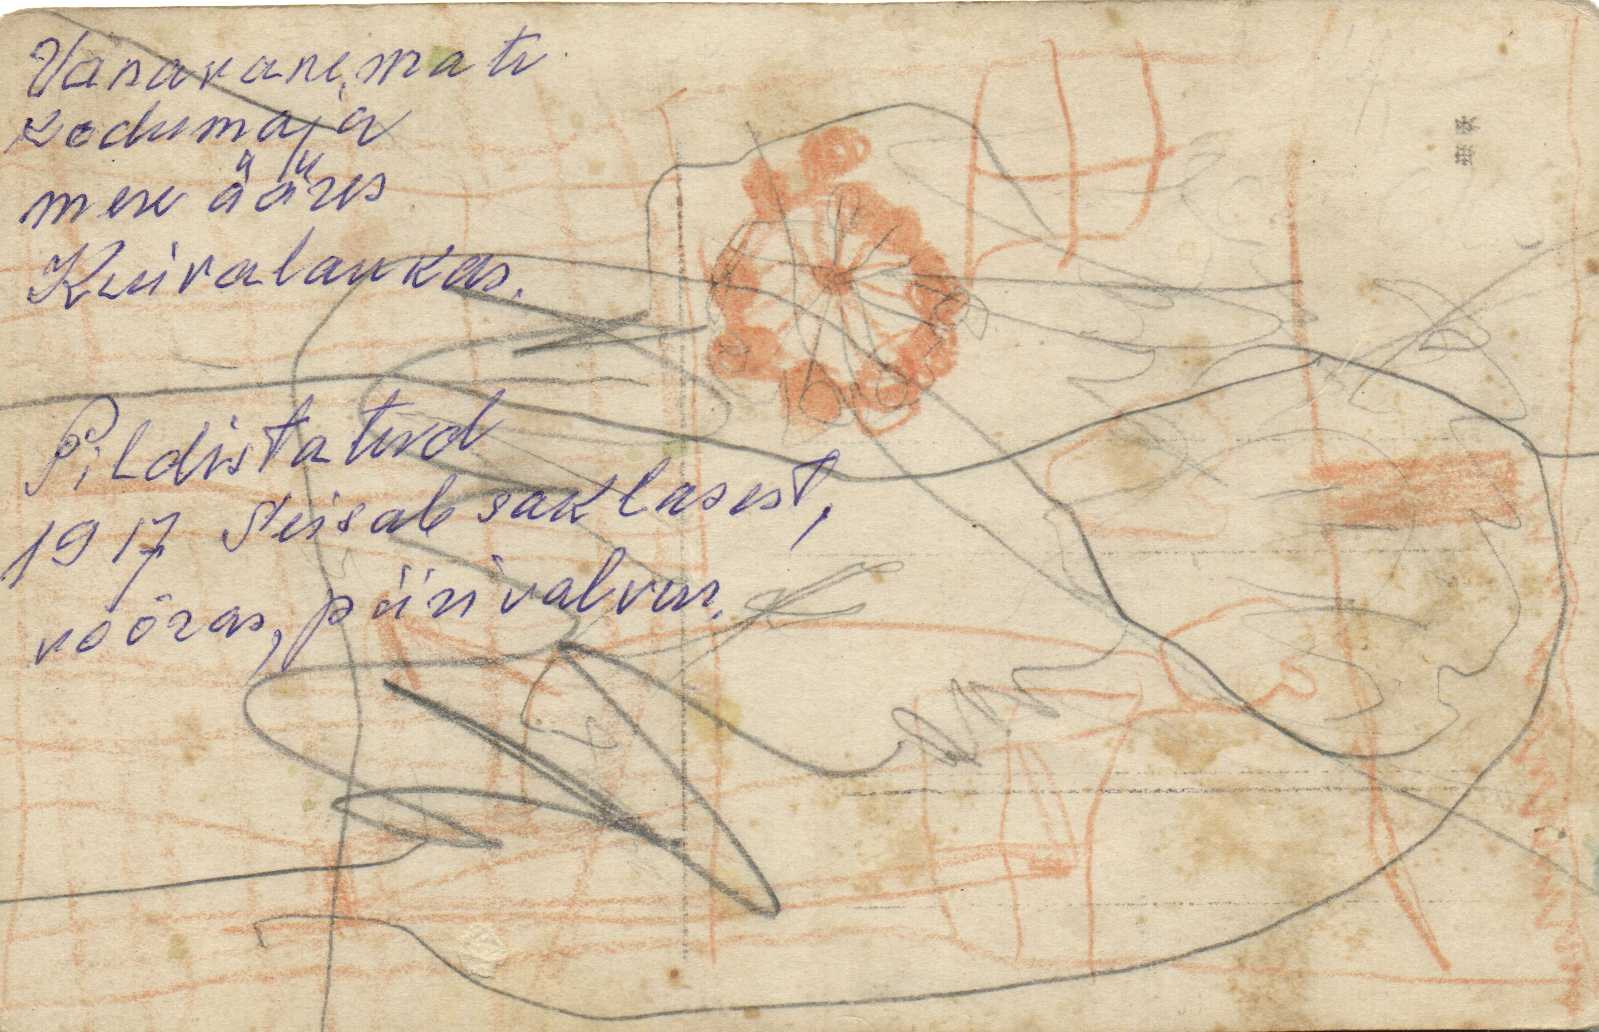 Vanavanemate
kodumaja
mere ääres
Kuivalaukas.
Pildistatud
1917 Seisab saklasest,
võõras, piirivalvur.